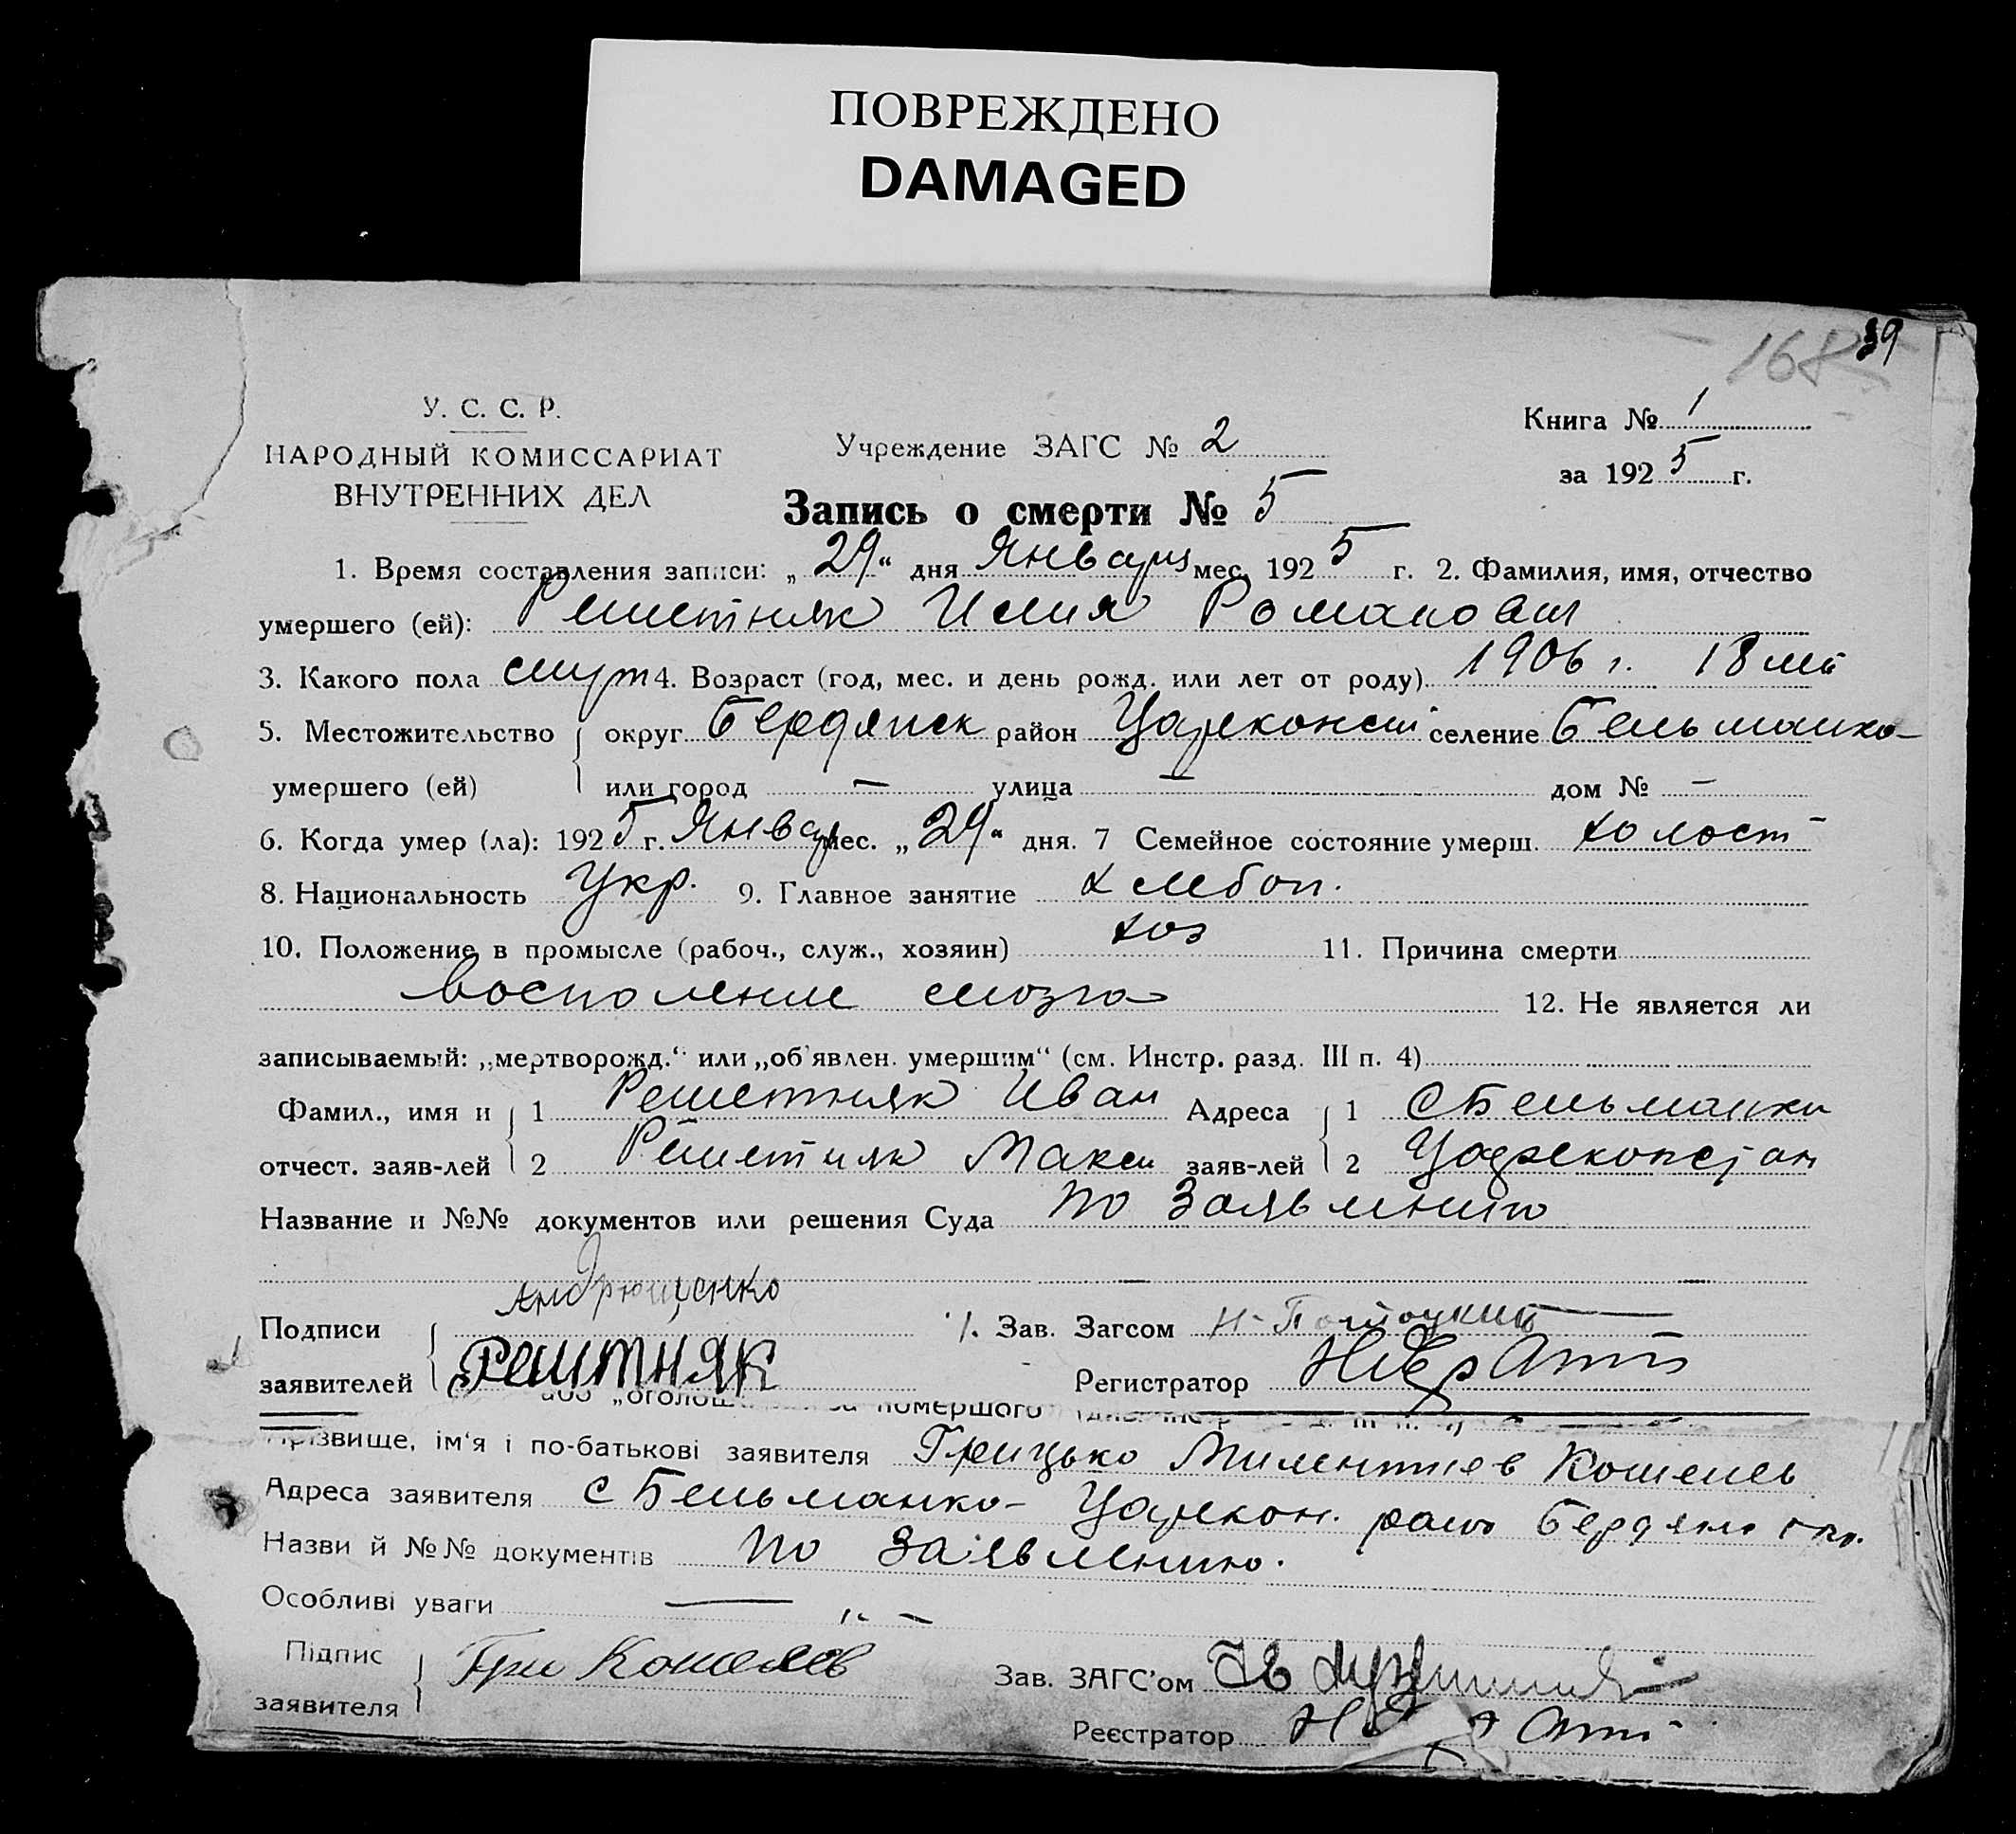 ПОВРЕЖДЕНО
DAMAGED
168 39
У. С. С. Р.
НАРОДНЫЙ КОМИССАРИАТ
ВНУТРЕННИХ ДЕЛ
Учреждение ЗАГС № 2
Книга № 1
за 1925 г.
Запись о смерти № 5
1. Время составления записи: „29“ дня Января мес. 1925 г. 2. Фамилия, имя, отчество
умершего (ей): Решетняк Илия Романович
3. Какого пола муж 4. Возраст (год, мес. и день рожд. или лет от роду) 1906 г. 18 лет
5. Местожительство округ Бердянск район Цареконст селение Бельманка
умершего (ей) или город — улица — дом № —
6. Когда умер (ла): 1925 г. Январ мес. „29“ дня. 7 Семейное состояние умерш. холост
8. Национальность Укр. 9. Главное занятие хлебоп.
10. Положение в промысле (рабоч., служ., хозяин) хоз 11. Причина смерти
восполение мозга 12. Не является ли
записываемый: „мертворожд.“ или „об'явлен. умершим“ (см. Инстр. разд. III п. 4)
Фамил., имя и 1 Решетняк Иван Адреса 1 с Бельманки
отчест. заяв-лей 2 Решетняк Макси заяв-лей 2 Цареконст
Название и №№ документов или решения Суда по заявлению
Андрющенко
Подписи Зав. Загсом
заявителей Рештняк Регистратор
або „оголош за помершого
Прізвище, ім'я і по-батькові заявителя Грицько Милентиев Кошелев
Адреса заявителя с Бельманка Царекон. район Бердянс окр.
Назви й №№ документів по заявлению.
Особливі уваги — „ —
Підпис Гри Кошелев Зав. ЗАГС'ом
заявителя Реєстратор